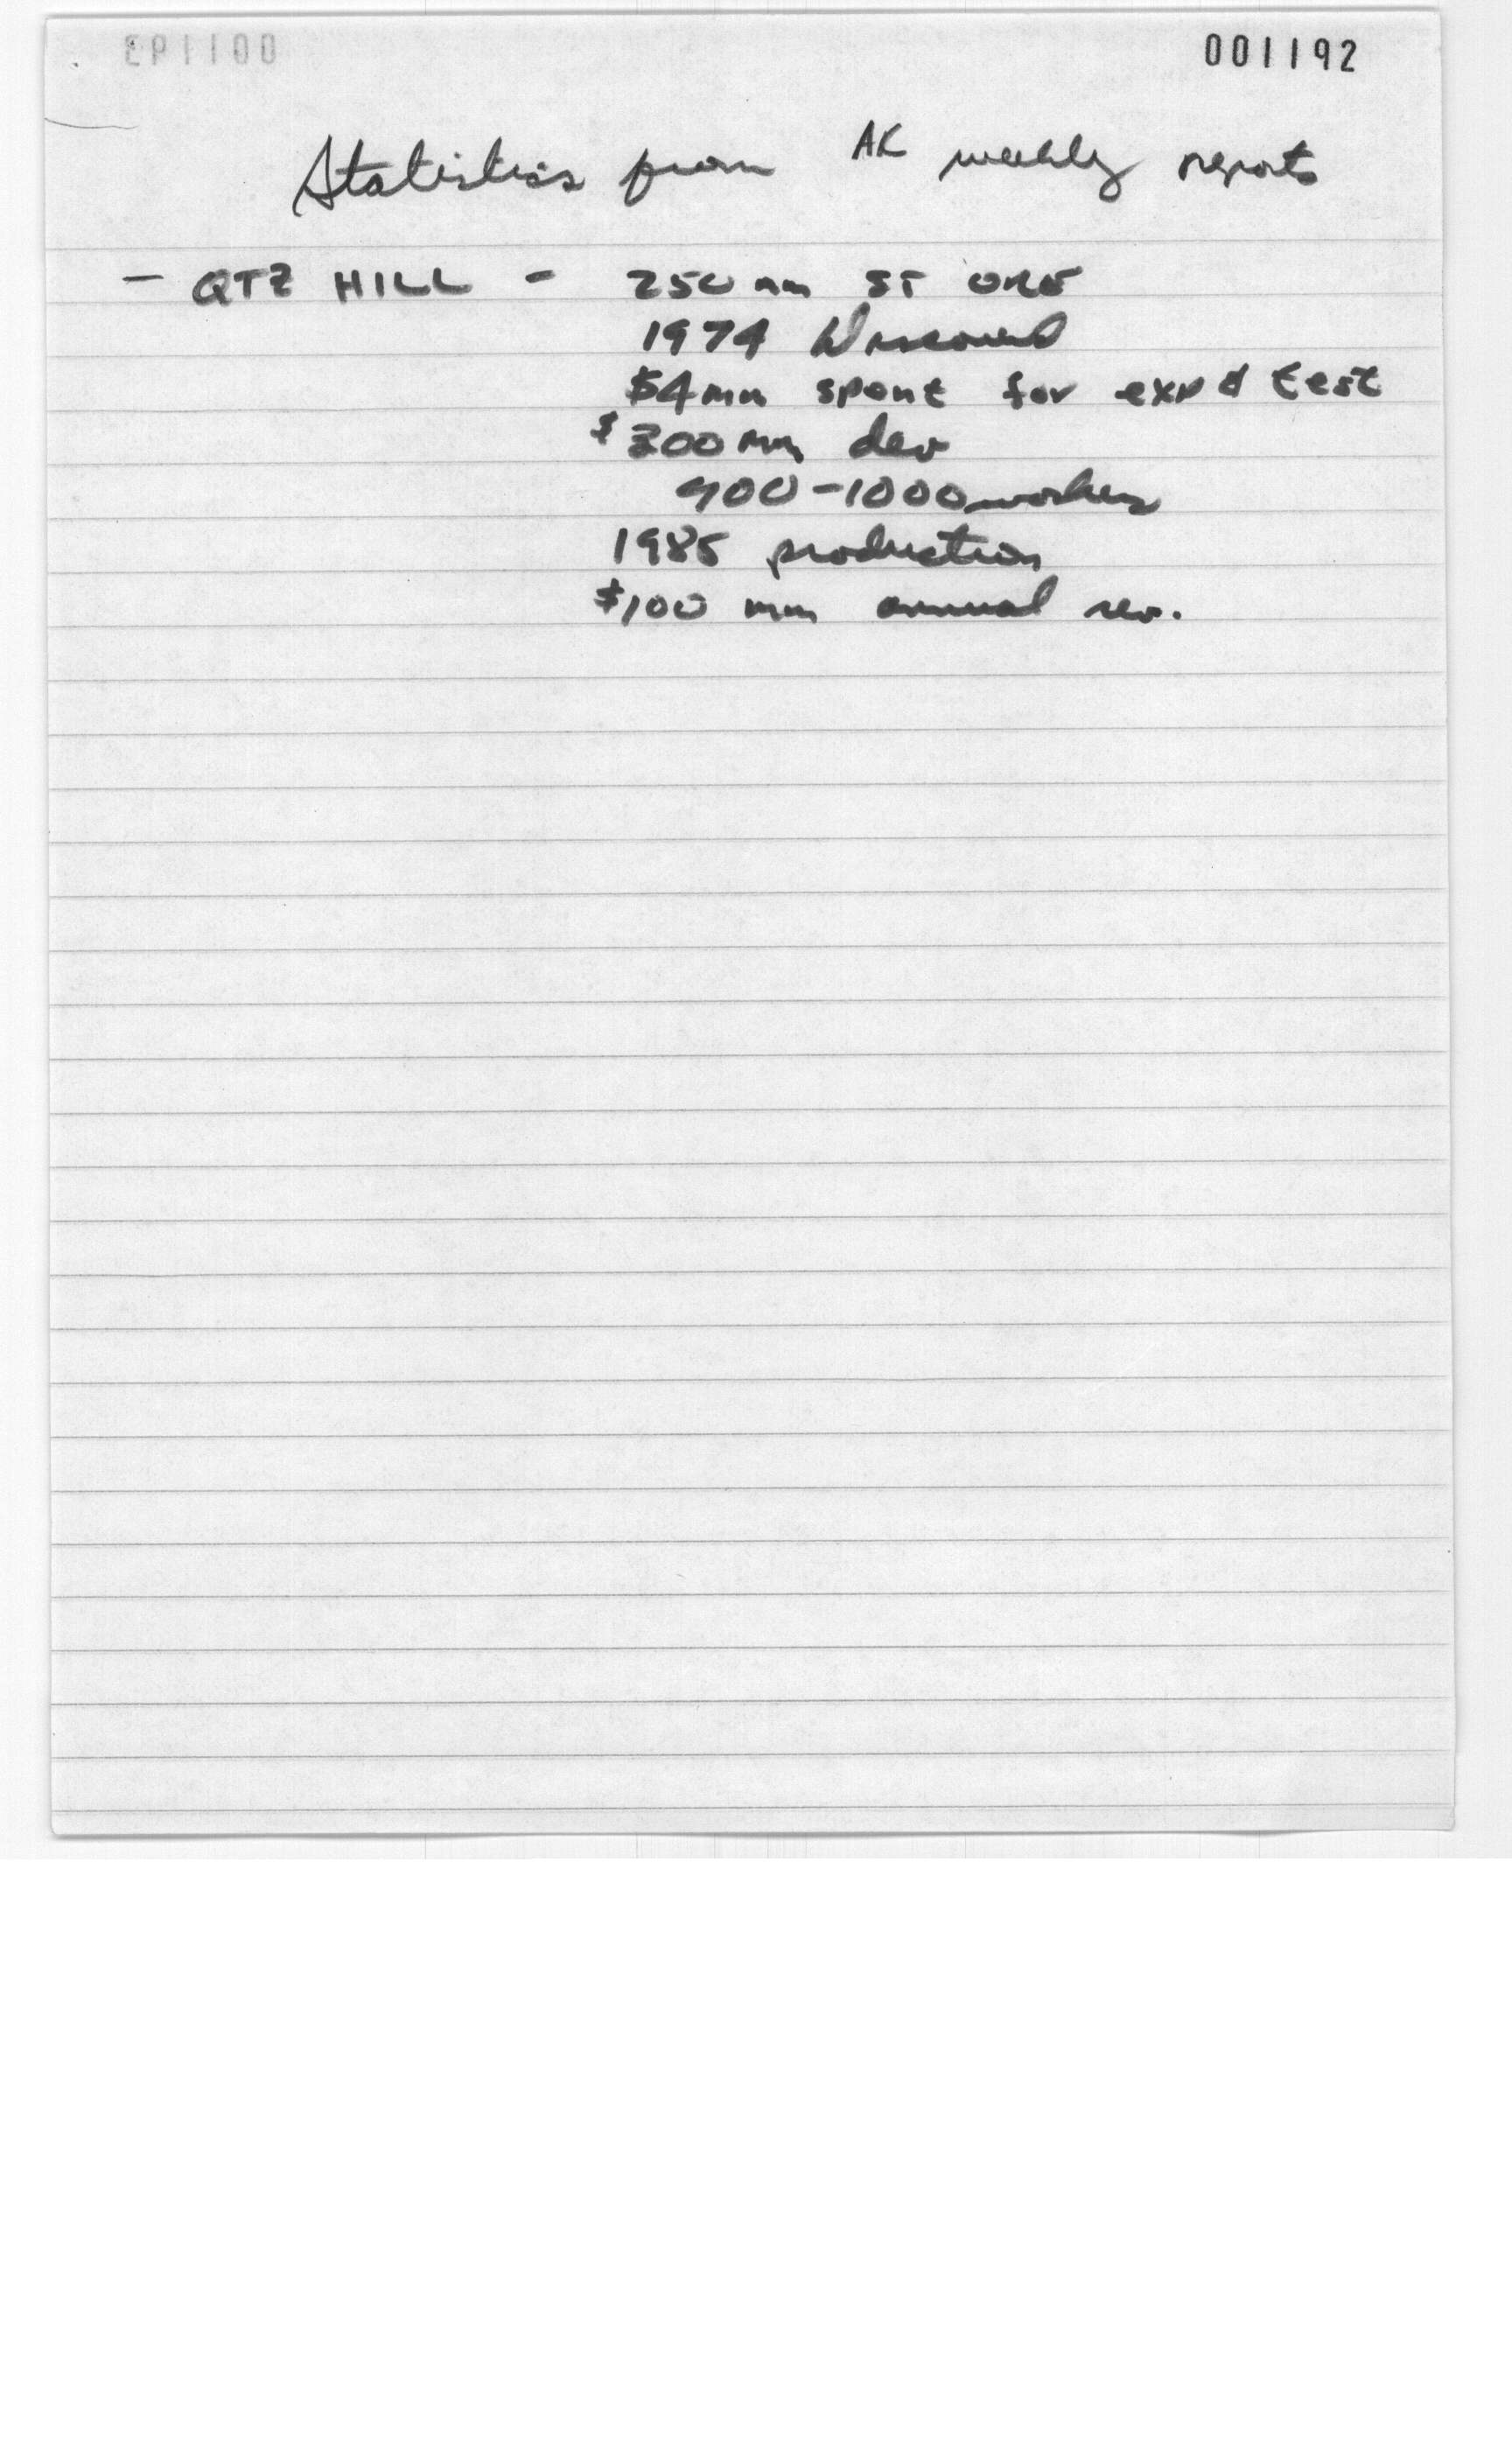 EP1100 001192
Statistics from AK weekly reports
- QTZ HILL - 250 mm ST ORE
1974 Discovered
$4mm spent for exp & test
$300 mm dev
900-1000 workers
1985 production
$100 mm annual rev.